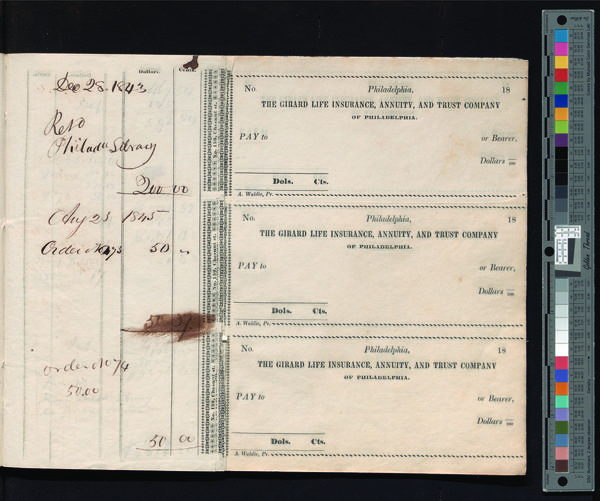 Dollars. Cents.
Dec 28. 1843
Philada Library
200 00
Aug 23 1845
50
order No 74
50.00
50 00
No. 159, Chesnut st.
No. 159, Chesnut st.
No. 159, Chesnut st.
No Philadelphia, 18
THE GIRARD LIFE INSURANCE, ANNUITY, AND TRUST COMPANY
OF PHILADELPHIA.
PAY to or Bearer,
Dollars 100
Dols. Cts.
A. Waldie, Pr.
No. Philadelphia, 18
THE GIRARD LIFE INSURANCE, ANNUITY, AND TRUST COMPANY
OF PHILADELPHIA.
PAY to or Bearer,
Dollars 100
Dols. Cts.
A. Waldie, Pr.
No. Philadelphia, 18
THE GIRARD LIFE INSURANCE, ANNUITY, AND TRUST COMPANY
OF PHILADELPHIA.
PAY to or Bearer,
Dollars 100
Dols. Cts.
A. Waldie, Pr.